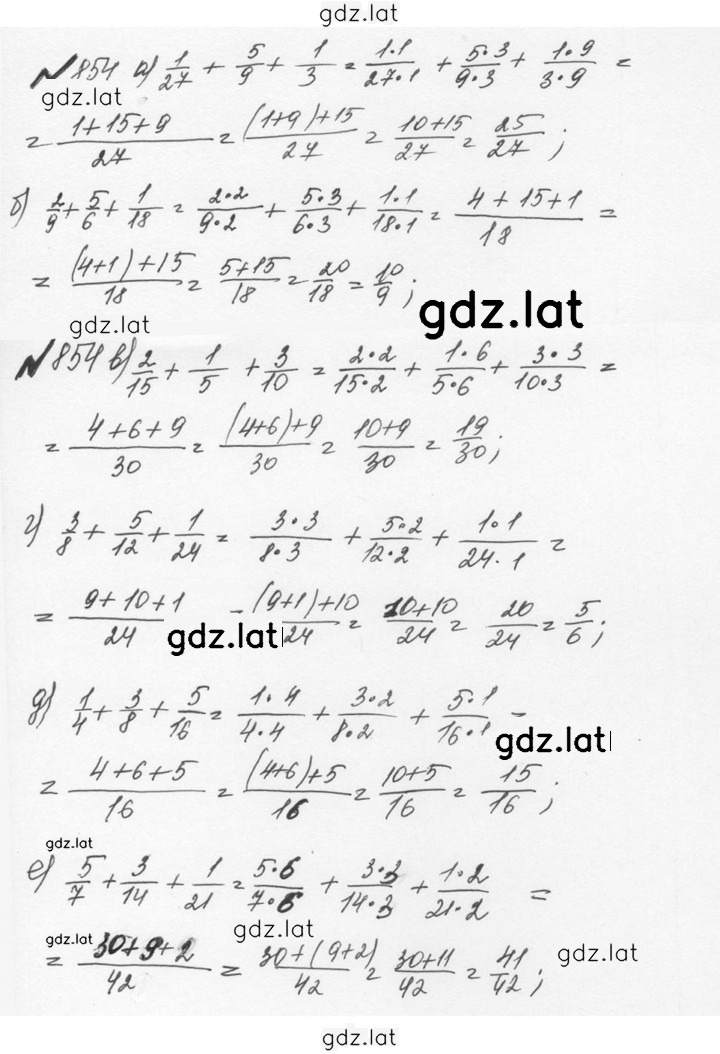 gdz.lat
№ 854 а) 1/27 + 5/9 + 1/3 = 1·1/27·1 + 5·3/9·3 + 1·9/3·9 =
gdz.lat
= 1+15+9/27 = (1+9)+15/27 = 10+15/27 = 25/27;
б) 2/9 + 5/6 + 1/18 = 2·2/9·2 + 5·3/6·3 + 1·1/18·1 = 4+15+1/18 =
= (4+1)+15/18 = 5+15/18 = 20/18 = 10/9;
gdz.lat
gdz.lat
№ 854 в) 2/15 + 1/5 + 3/10 = 2·2/15·2 + 1·6/5·6 + 3·3/10·3 =
= 4+6+9/30 = (4+6)+9/30 = 10+9/30 = 19/30;
г) 3/8 + 5/12 + 1/24 = 3·3/8·3 + 5·2/12·2 + 1·1/24·1 =
= 9+10+1/24 - (9+1)+10/24 = 10+10/24 = 20/24 = 5/6;
gdz.lat
д) 1/4 + 3/8 + 5/16 = 1·4/4·4 + 3·2/8·2 + 5·1/16·1 -
gdz.lat
= 4+6+5/16 = (4+6)+5/16 = 10+5/16 = 15/16;
gdz.lat
е) 5/7 + 3/14 + 1/21 = 5·6/7·6 + 3·3/14·3 + 1·2/21·2 =
gdz.lat gdz.lat gdz.lat
= 30+9+2/42 = 30+(9+2)/42 = 30+11/42 = 41/42;
gdz.lat